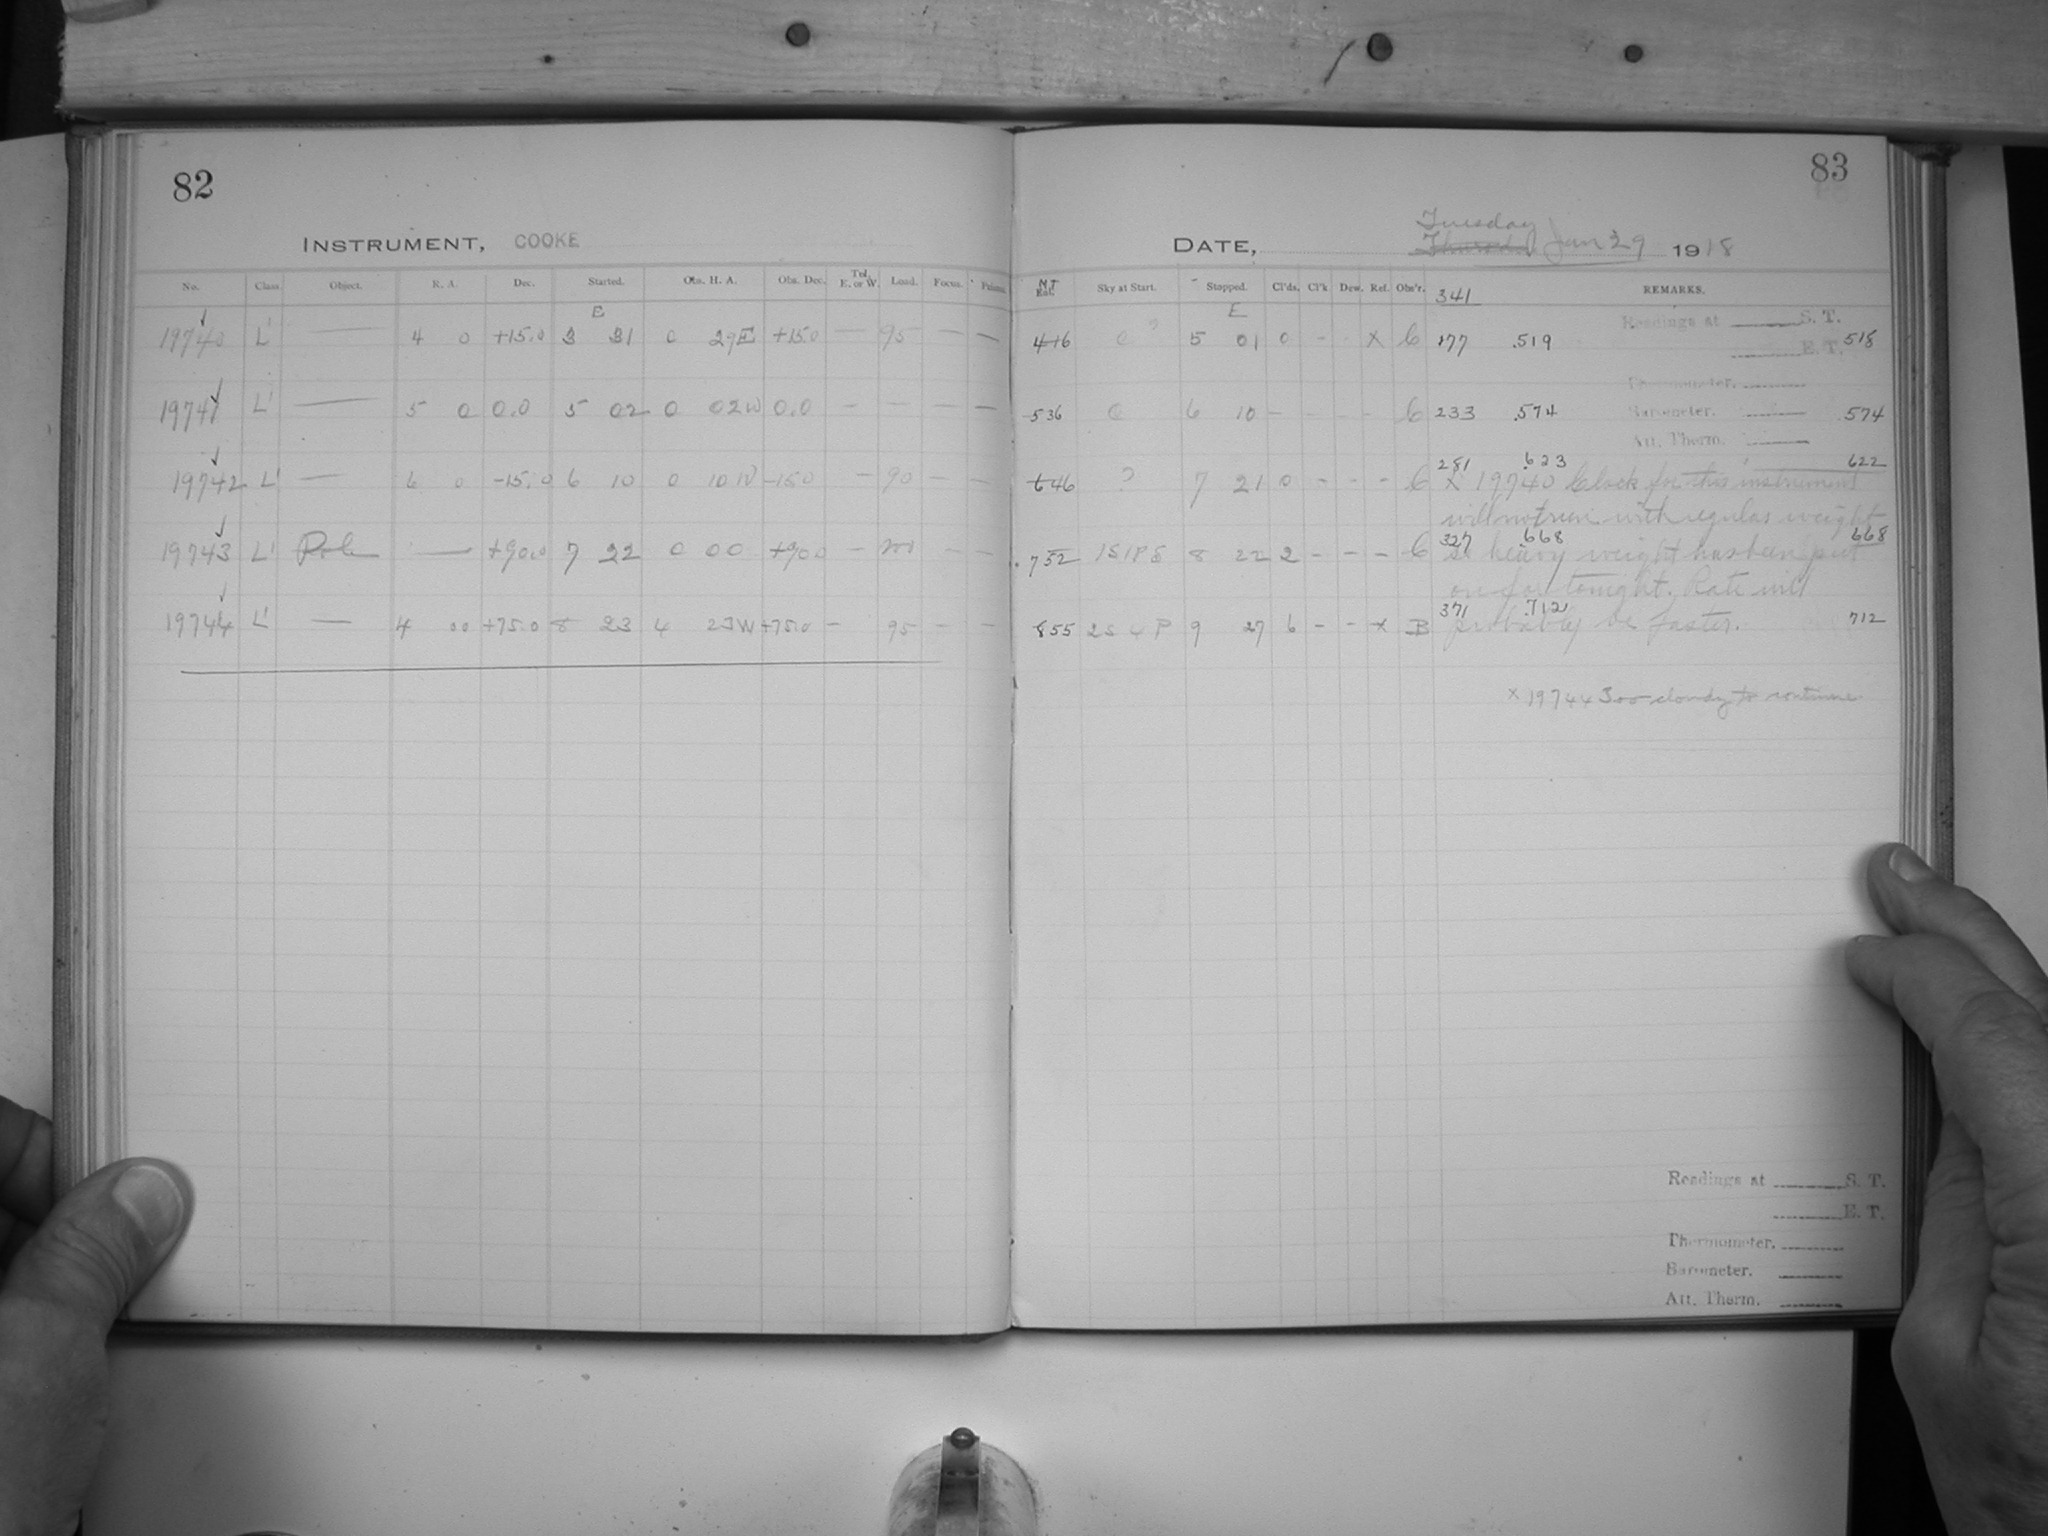 82
INSTRUMENT, COOKE
No. Class. Object. R. A. Dec. Started. Obs. H. A. Obs. Dec. Tel. E. or W. Load. Focus.
E
19740 L' — 4 0 +15.0 3 31 0 29E +15.0 — 95 — —
19741 L' — 5 0 0.0 5 02 0 02W 0.0 — — — —
19742 L' — 6 0 -15.0 6 10 0 10W -15.0 — 90 — —
19743 L' Pole — +90.0 7 22 0 00 +90.0 — — —
19744 L' — 4 00 +75.0 8 23 4 23W +75.0 — 95 — —
83
Tuesday
DATE, Thursday Jan 29 1918
M.T. Sky at Start. Stopped. Cl'ds. Cl'k Dew. Ref. Obs'r. 341 REMARKS.
E
Readings at S. T.
416 C ? 5 01 0 - - X C 177 .519 E. T. 518
Thermometer.
536 C 6 10 - - - - C 233 .574 Barometer. .574
Att. Therm.
281 .623 622
646 ? 7 21 0 - - - C X 19740 Clock for this instrument
will not run with regular weight
327 .668 668
752 1S1P5 8 22 2 - - - C so heavy weight has been put
on for tonight. Rate will
371 .712
855 2S4P 9 27 6 - - X B probably be faster. 712
X 19744 Too cloudy to continue
Readings at S. T.
E. T.
Thermometer.
Barometer.
Att. Therm.